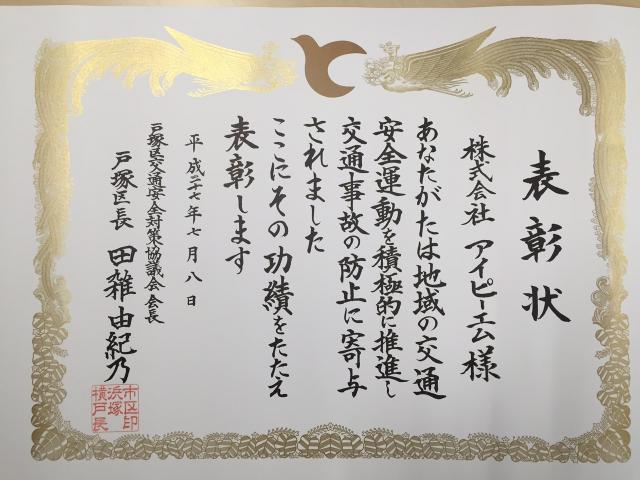 表彰状
株式会社 アイピーエム様
あなたがたは地域の交通
安全運動を積極的に推進し
交通事故の防止に寄与
されました
ここにその功績をたたえ
表彰します
平成二十七年七月八日
戸塚区交通安全対策協議会会長
戸塚区長 田雑由紀乃
市区印
浜塚
横戸長